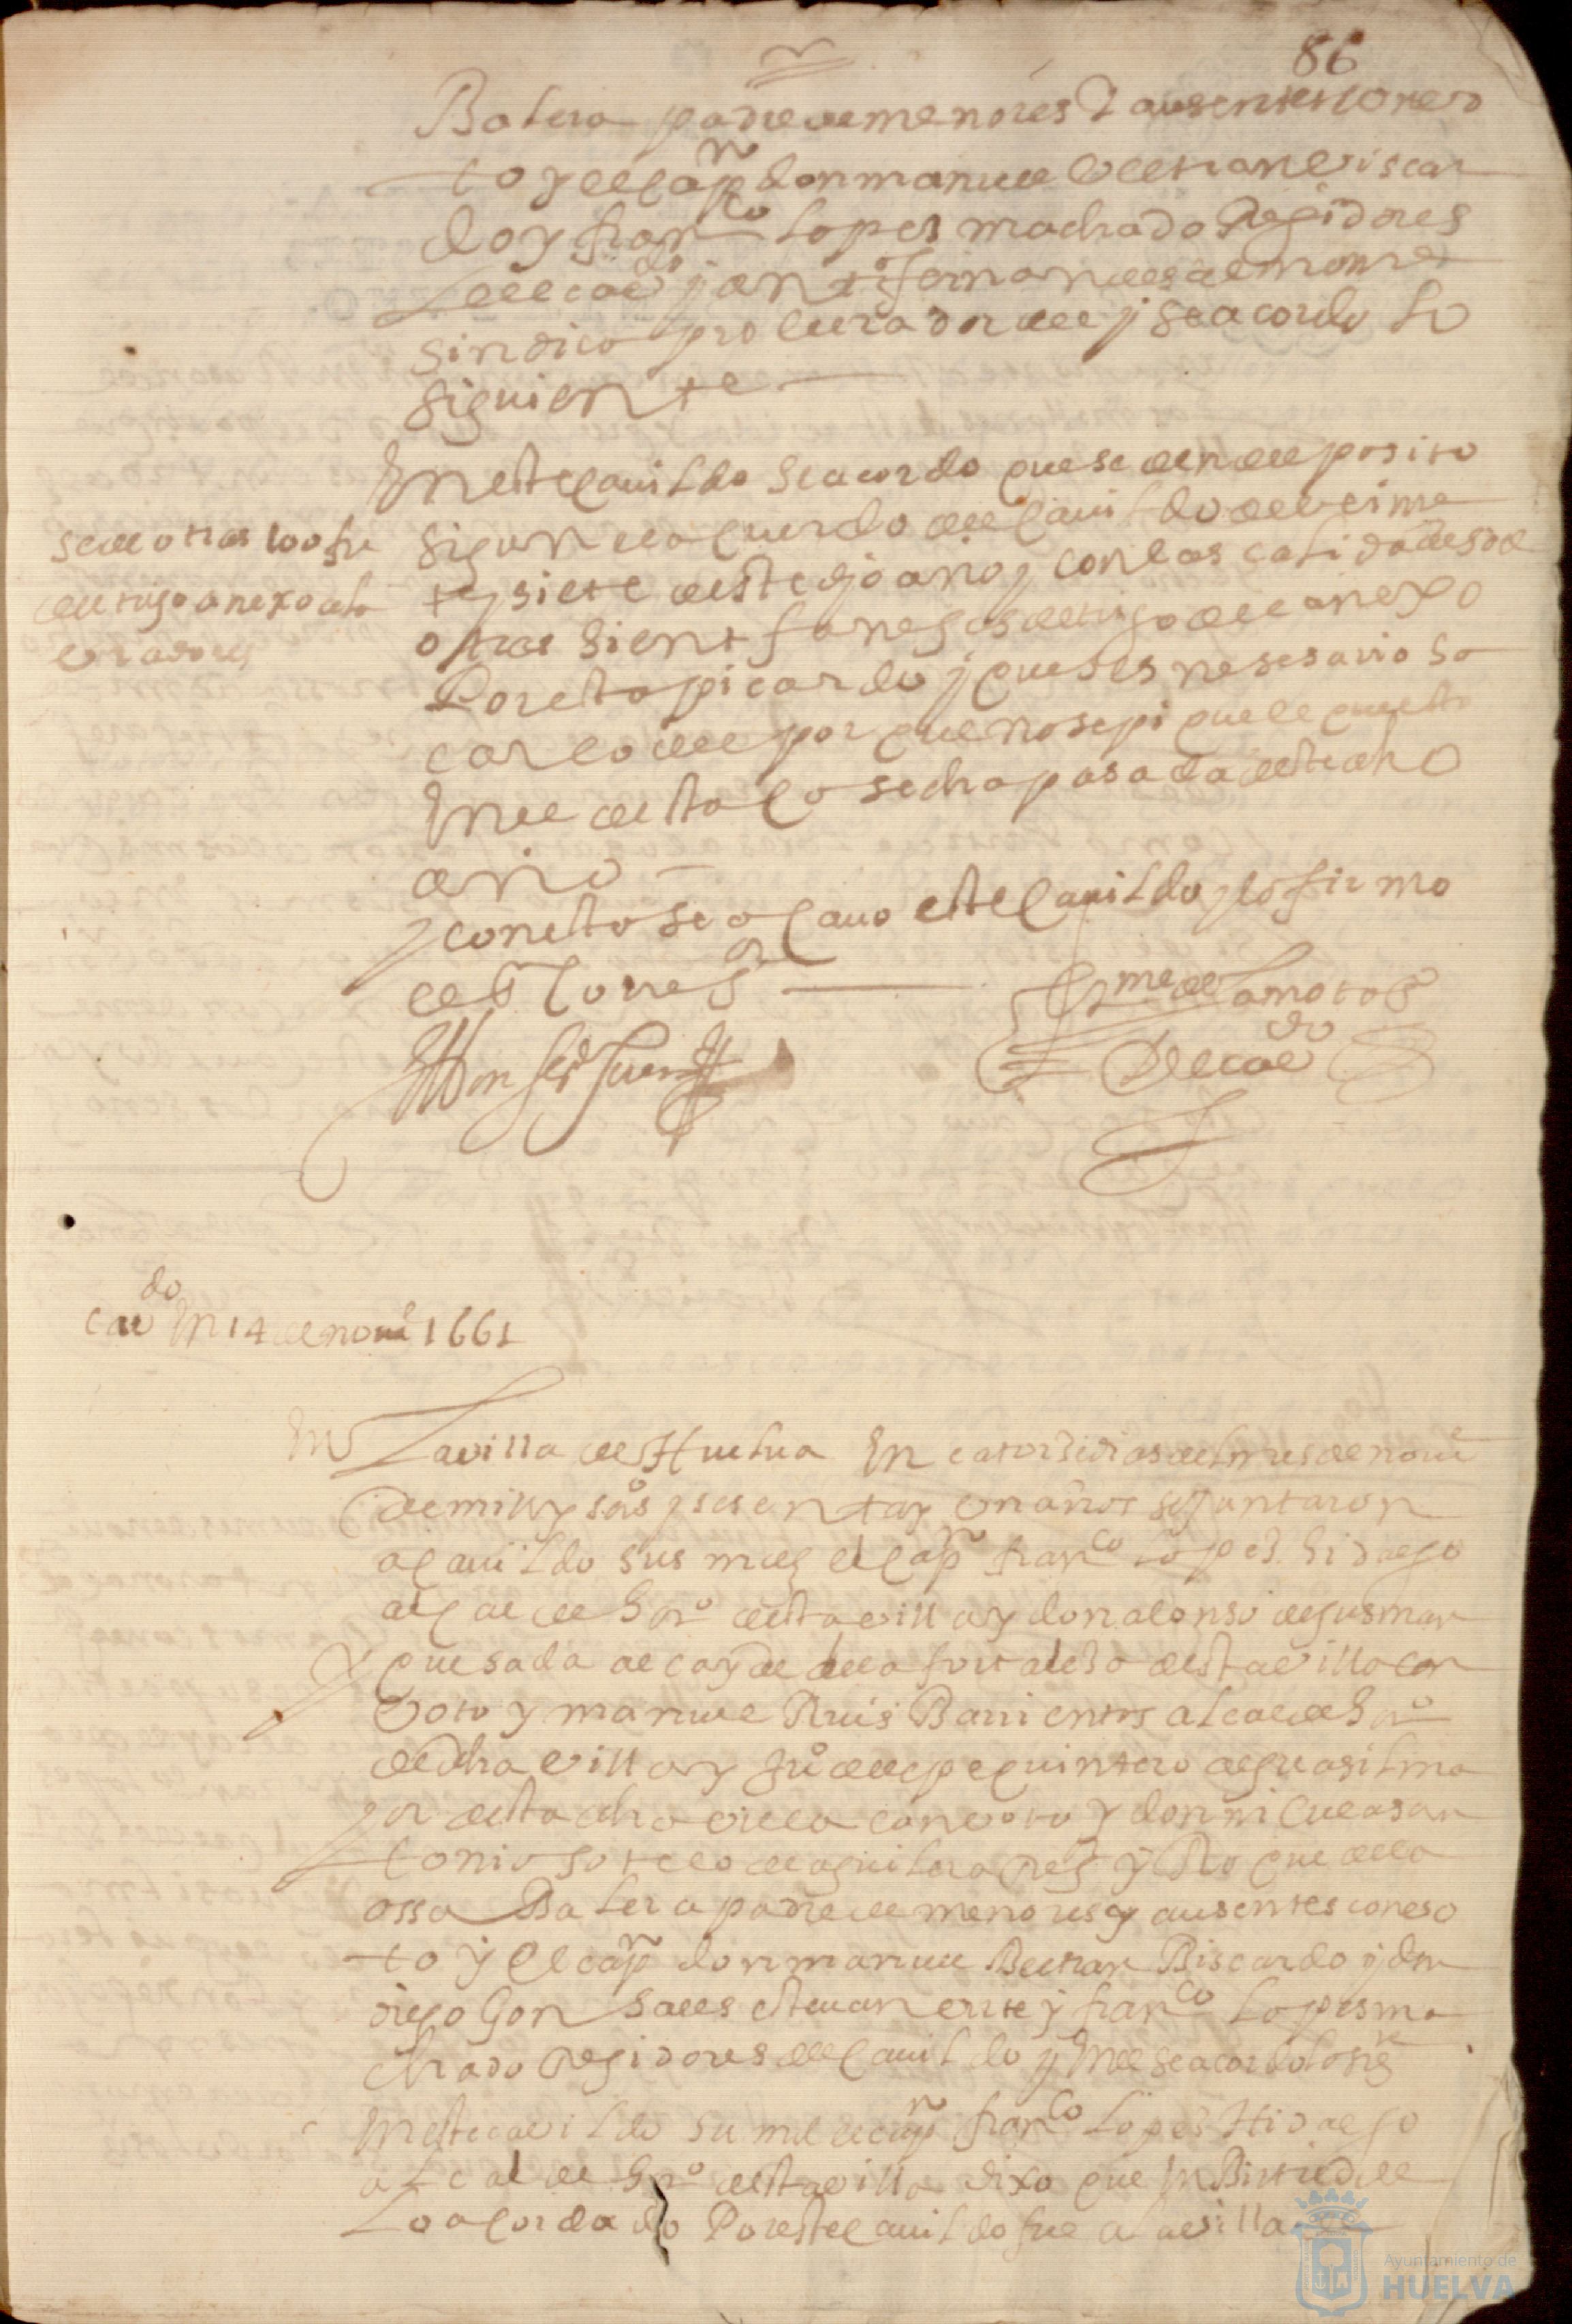 86
Batera padre de menores y ausentes con vo
to y el capn don manuel Veltran Viscar
do y franco Lopes machado Regidores
del cavdo y anto fernandes de
sindico procurador del y se acordo lo
siguiente
En este Cauildo se acordo que se den del posito
sigun el aquerdo del Cauildo de veinte
y siete deste djo ano y con las calidades de
otras sient fanegas de trigo del anexo
por estar picardo y que es nesesario sa
carlo del por que no se pi que el questa
En el de sta cosecha pasada deste dho
año
y con esto se acauo este Cauildo y lo firmo
se de otras 100 fu
de trigo anexo a la
bradores
cavdo En 14 de noue 1661
En La villa de Huelua En catorse dias del mes de noue
de mill y sos y sesenta y un años se juntaron
a Cauildo sus mds el Capn franco Lopes hidalgo
alcalde hordo desta villa y don alonso de gusman
y quesada alcayde de la fortalesa desta villa con
Voto y manuel Ruis Barrientos alcalde hordo
de dha villa y juo felipe quintero alguasil ma
yor desta dha villa con voto y don nicolas an
tonio sotelo de aguilera Reg y Roque de la
ossa Batera padre de menores y ausentes con vo
to y El capn don manuel Beltran Biscardo y don
diego Gonsales estevan y franco Lopes ma
chado Regidores del Cauildo y En el se acordo lo sige
En este cavildo su md el capn franco Lopes Hidalgo
alcalde hordo desta villa dixo que En Birtud de
Lo acordado Por este Cauildo fue a la villa
Ayuntamiento de
HUELVA